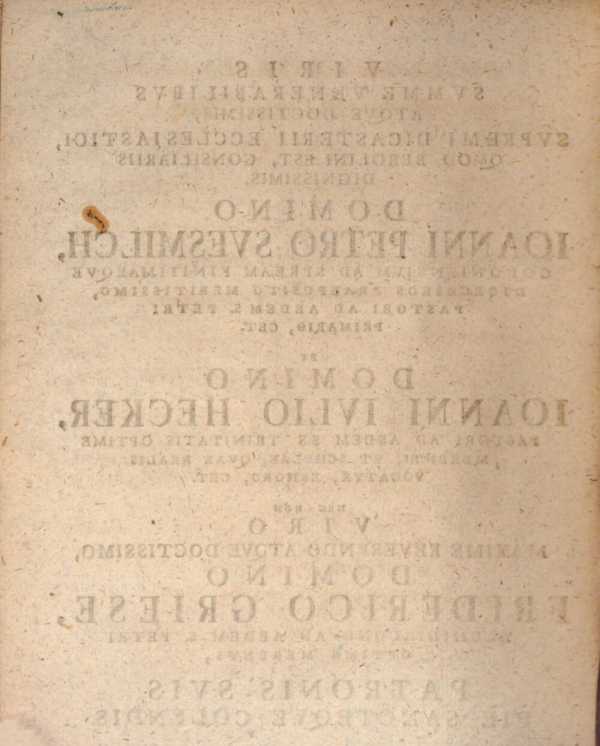 VIRIS
SVMME VENERABILIBVS
ATQVE DOCTISSIMIS
SVPREMI DICASTERII ECCLESIASTICI,
QVOD BEROLINI EST, CONSILIARIIS
DIGNISSIMIS,
DOMINO
IOANNI PETRO SVESMILCH,
AD SPREAM FINITIMARVMQVE
MERITISSIMO,
PASTORI AD AEDEM S. PETRI
PRIMARIO, CET.
ET
DOMINO
IOANNI IVLIO HECKER,
PASTORI AD AEDEM SS TRINITATIS OPTIME
MERENTI, ET SCHOLAE, QVAE REALIS
VOCATVR, EPHORO, CET.
NEC NON
VIRO
MAXIME REVERENDO ATQVE DOCTISSIMO,
DOMINO
FRIDERICO GRIESE,
AD AEDEM S. PETRI
PATRONIS SVIS
PIE SANCTEQVE COLENDIS